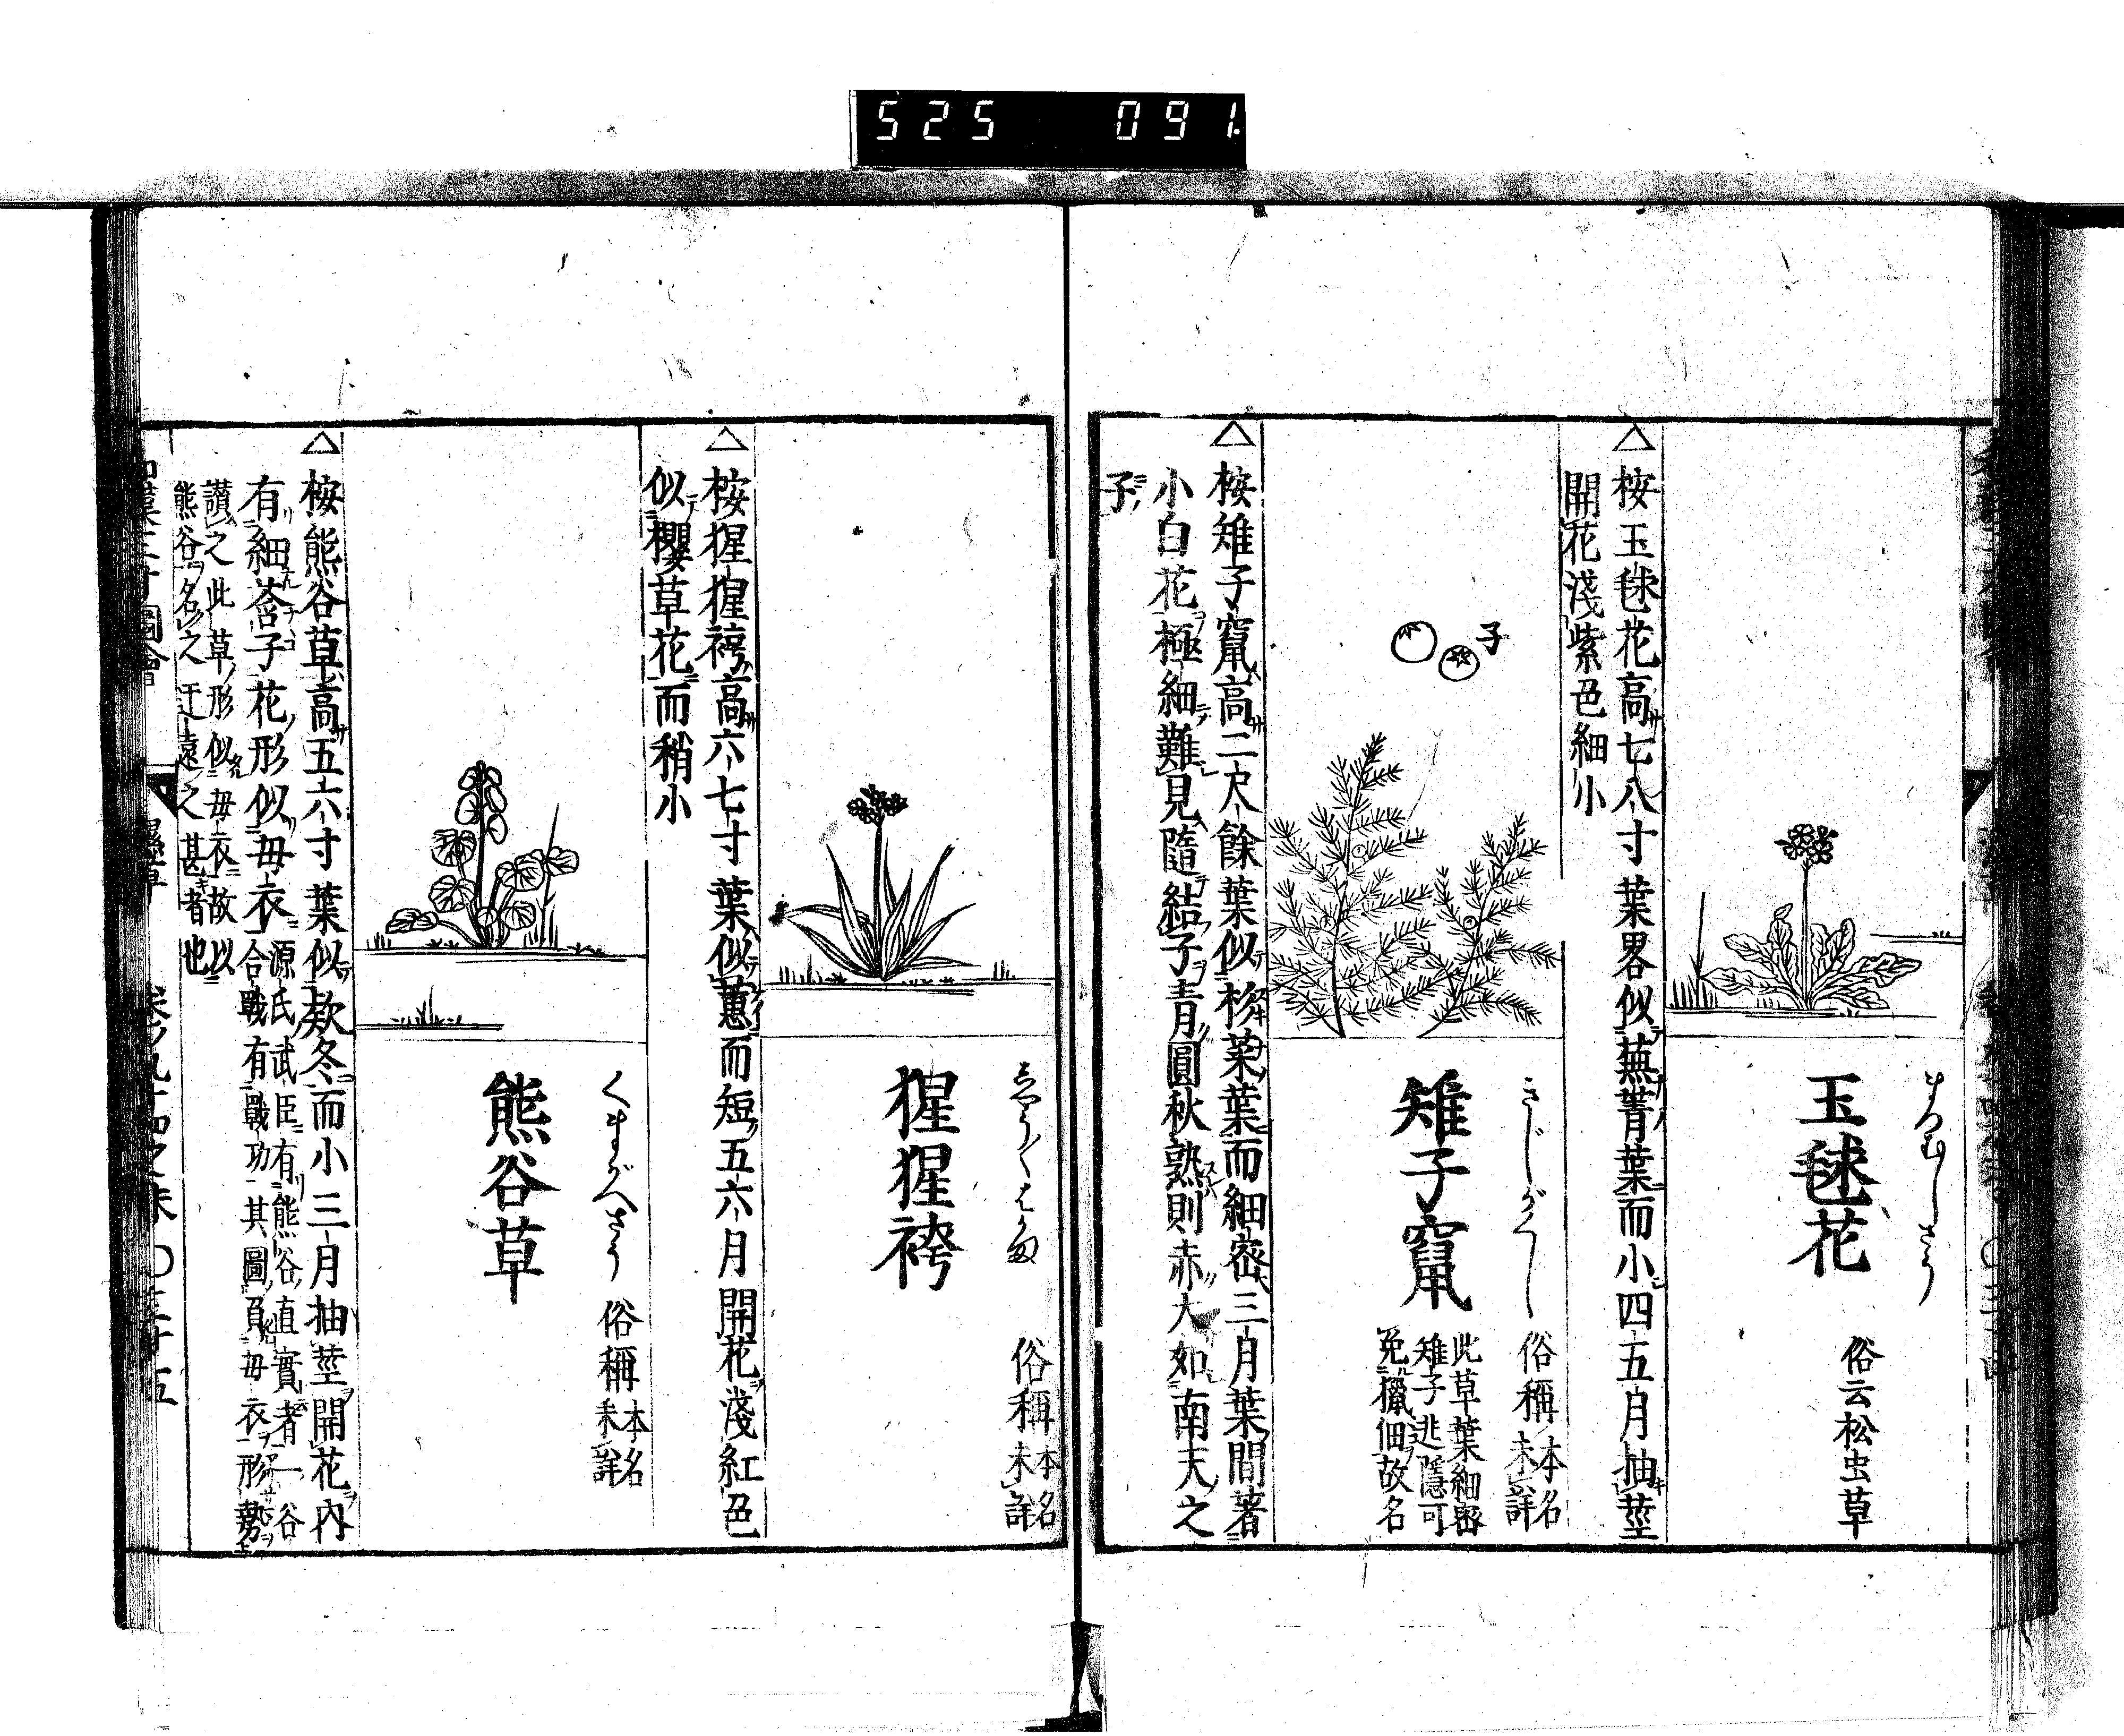 525 091
まつむしさう
玉毬花
俗云松虫草
△桉玉毬花高七八寸葉畧似蕪菁葉而小四五月抽莖
開花淺紫色細小
きじがくし
俗稱
本名
未詳
雉子竄
此草葉細宻
雉子逃隱可
免獵佃故名
子
△桉雉子竄高二尺餘葉似杉菜葉而細宻三月葉間著
小白花極細難見隨結子青圓秋熟則赤大如南天之
子
俗稱
本名
未詳
猩猩袴
△桉猩猩袴高六七寸葉似蕙而短五六月開花淺紅色
似櫻草花而稍小
くまがへさう
俗稱
本名
未詳
熊谷草
△桉熊谷草高五六寸葉似欵冬而小三月抽莖開花内
有細莟子花形似母衣
源氏武臣有熊谷直實者一谷
合戰有戰功其圖負母衣形勢
讃之此草形似母衣故以
熊谷名之迂遠之甚者也